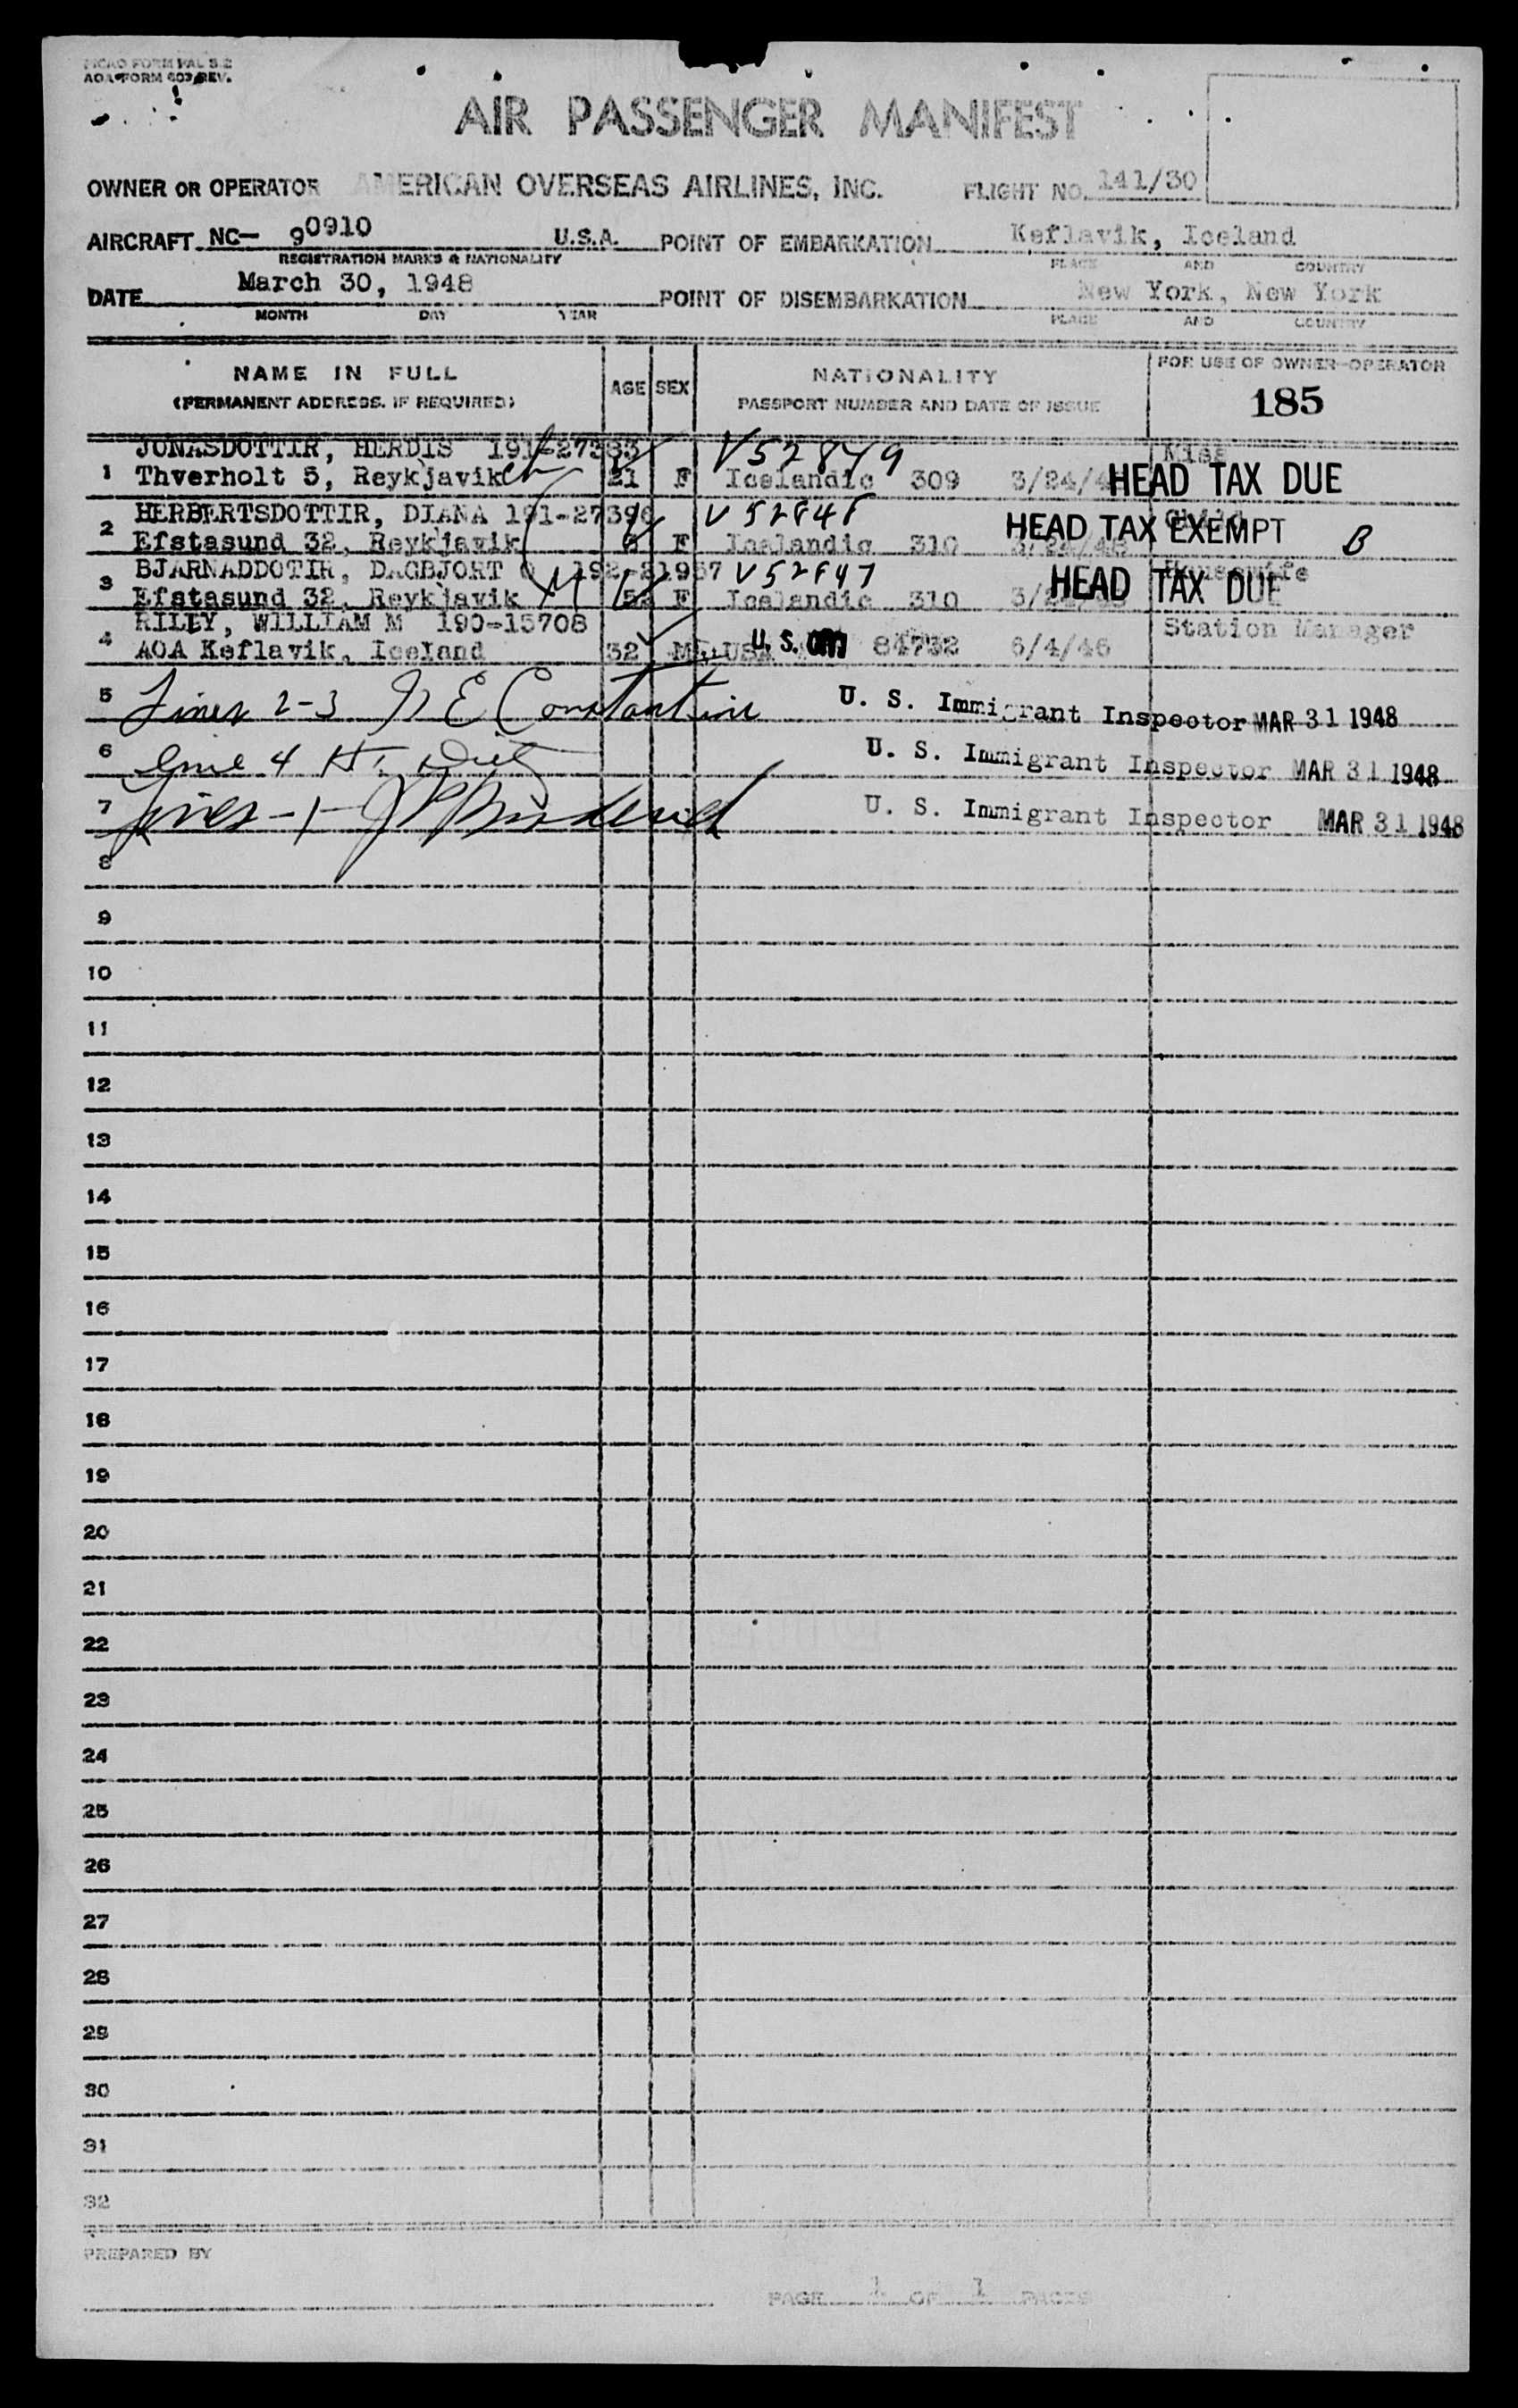 AOA FORM 603 REV.
AIR PASSENGER MANIFEST
OWNER OR OPERATOR AMERICAN OVERSEAS AIRLINES, INC. FLIGHT NO. 141/30
AIRCRAFT NC— 90910 U.S.A. POINT OF EMBARKATION Keflavik, Iceland
REGISTRATION MARKS & NATIONALITY PLACE AND COUNTRY
DATE March 30, 1948 POINT OF DISEMBARKATION New York, New York
MONTH DAY YEAR PLACE AND COUNTRY
NAME IN FULL AGE SEX NATIONALITY FOR USE OF OWNER-OPERATOR
(PERMANENT ADDRESS, IF REQUIRED) PASSPORT NUMBER AND DATE OF ISSUE 185
JONASDOTTIR, HERDIS 191-27383 V52849 Miss
1 Thverholt 5, Reykjavik 21 F Icelandic 309 3/24/4 HEAD TAX DUE
HERBERTSDOTTIR, DIANA 191-27396 V52848 Child
2 Efstasund 32, Reykjavik F Icelandic 310 3/24/48 HEAD TAX EXEMPT B
BJARNADDOTIR, DAGBJORT 192-21957 V52847 Housewife
3 Efstasund 32, Reykjavik 52 F Icelandic 310 HEAD TAX DUE
RILEY, WILLIAM M 190-15708 Station Manager
4 AOA Keflavik, Iceland 32 M USA U.S. 84732 6/4/46
5 Lines 2-3 E Constantine U. S. Immigrant Inspector MAR 31 1948
6 Line 4 U. S. Immigrant Inspector MAR 31 1948
7 Lines -1- U. S. Immigrant Inspector MAR 31 1948
8
9
10
11
12
13
14
15
16
17
18
19
20
21
22
23
24
25
26
27
28
29
30
31
32
PREPARED BY
PAGE 1 OF 1 PAGES